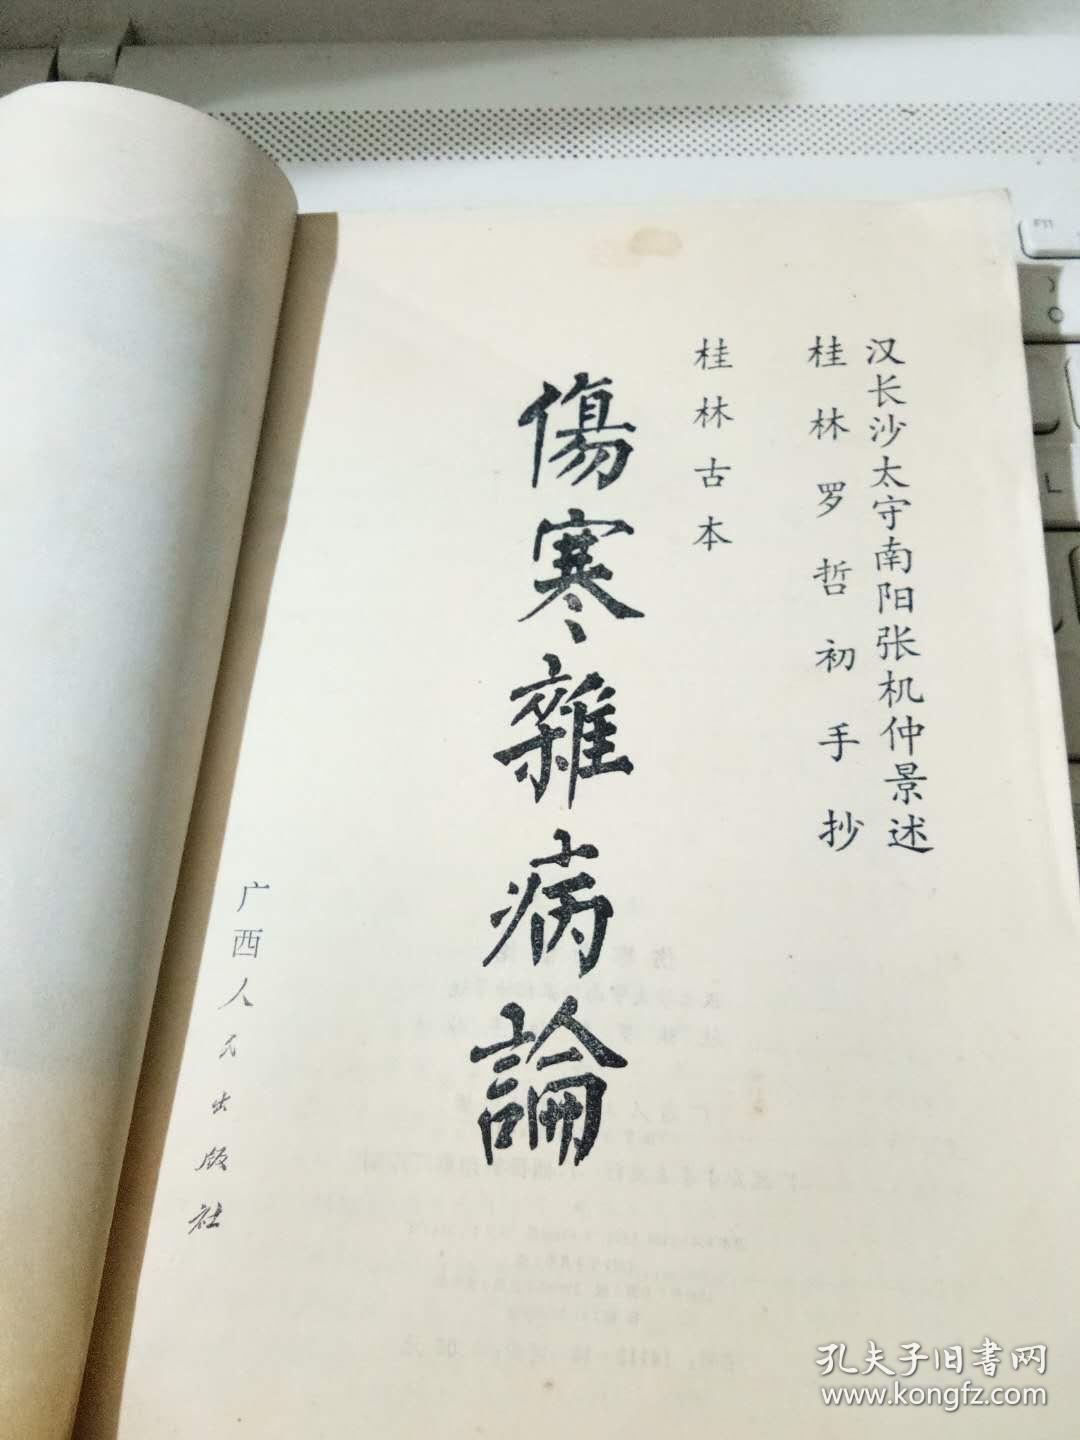 汉长沙太守南阳张机仲景述
桂林罗哲初手抄
桂林古本
傷寒雜病論
广西人民出版社
F11
L
孔夫子旧书网
www.kongfz.com